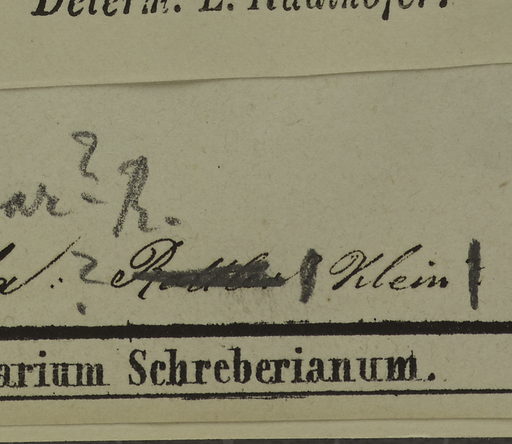 Determ. L. Radlkofer.
ar ? R.
? Rottler Klein
arium Schreberianum.